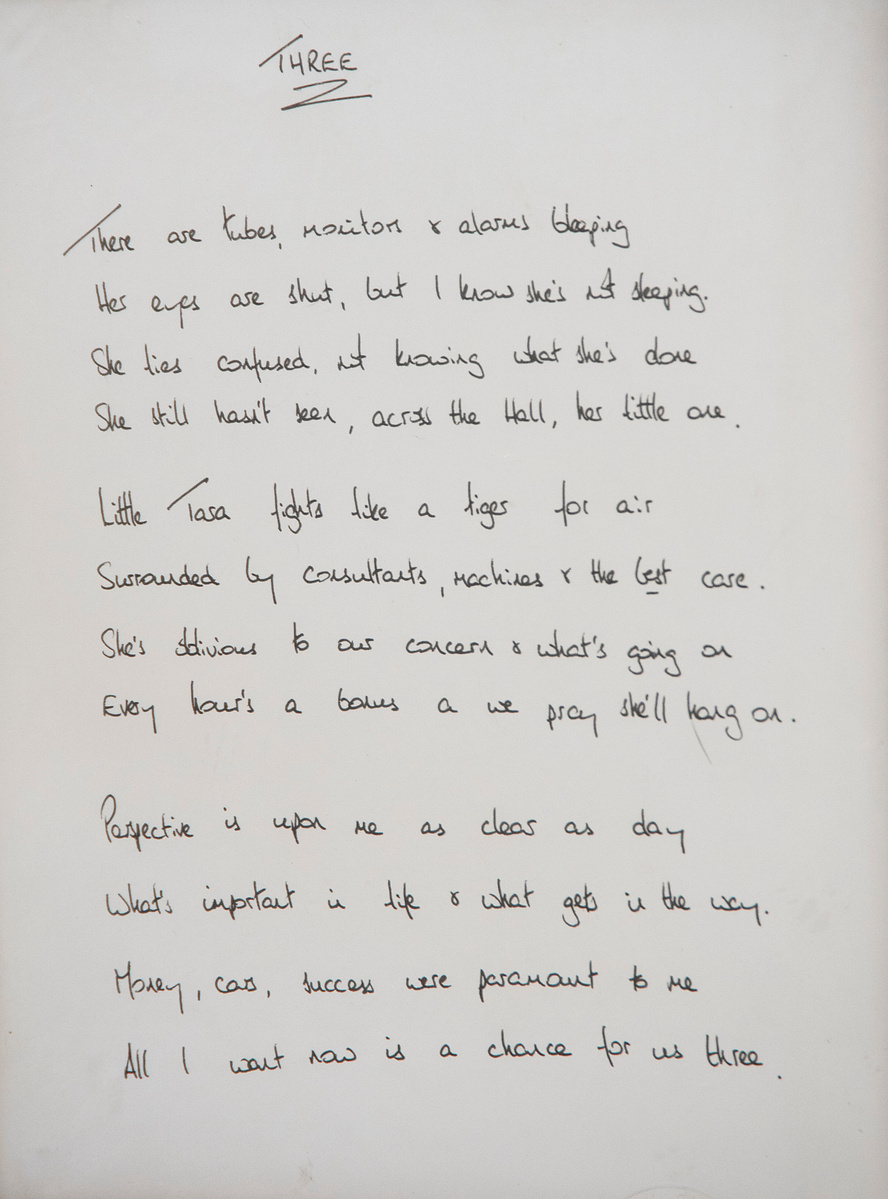 THREE
There are tubes, monitors & alarms bleeping
Her eyes are shut, but I know she's not sleeping.
She lies confused, not knowing what she's done
She still hasn't seen, across the Hall, her little one.
Little Tasa fights like a tiger for air
Surrounded by consultants, machines & the best care.
She's oblivious to our concern & what's going on
Every hour's a bonus a we pray she'll hang on.
Perspective is upon me as clear as day
What's important in life & what gets in the way.
Money, cars, success were paramount to me
All I want now is a chance for us three.